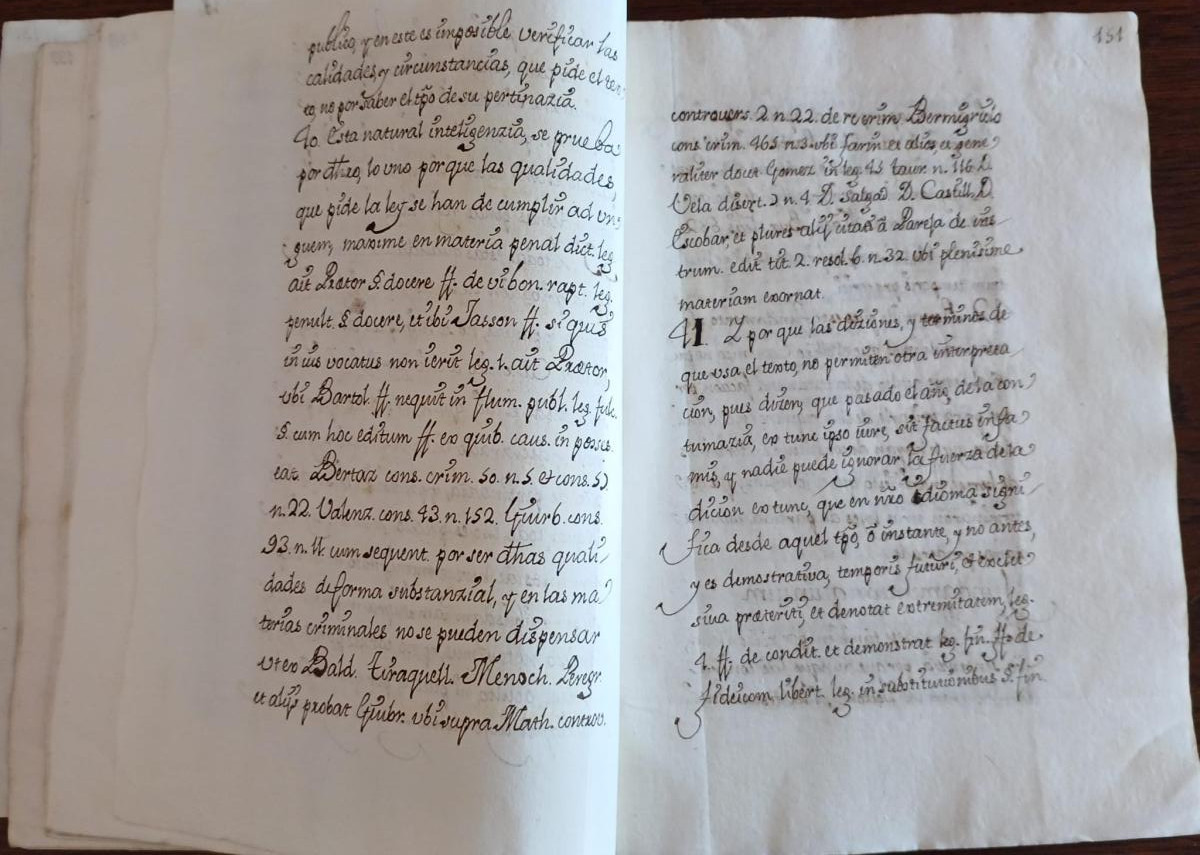 publico, y en este es imposible verificar las
calidades, y circunstancias, que pide el tex
to, no por saber el tpõ de su pertinazia.
40. Esta natural inteligenzia, se prueba
por dho, lo uno porque las qualidades,
que pide la ley se han de cumplir ad un
guem, maxime en materia penal dict. leg.
ait Prætor §. docere ff. de vi bon. rapt. leg.
penult. §. docere, et ibi Jasson ff. si quis
in ius vocatus non ierit leg. 1. ait Prætor,
ubi Bartol. ff. ne quit in flum. publ. leg. fulc.
§. cum hoc editum ff. ex quib. caus. in posses.
eat. Bertaz cons. crim. 50. n. 5. & cons. 52.
n. 22. Valenz. cons. 43. n. 152. Giurb. cons.
93. n. 11. cum sequent. por ser dhas quali
dades de forma substanzial, y en las ma
terias criminales no se pueden dispensar
ut ex Bald. Tiraquell. Menoch. Peregr.
et alijs probat Giubr. ubi supra Math. controv.
151
controvers. 2 n. 22. de re crim. Bermigriolo
cons. crim. 465 n. 3. ubi farin et alios, et gene
raliter docet Gomez in leg. 45 taur. n. 116 L.
Vela disert. 2 n. 4 D. Salgad D. Castill. D.
Escobar, et plures alij citad á Pareja de ins
trum. edit. tit. 2. resol. 6. n. 32. ubi plenisime
materiam exornat.
41 Y por que las diziones, y terminos de
que usa, el texto, no permiten otra interpreta
cion, pues dizen, que pasado el año, de la con
tumazia, ex tunc ipso iure, sit factus infa
mis, y nadie puede ignorar la fuerza de la
dicion ex tunc, que en nrõ Idioma signi
fica desde aquel tpõ, ô instante, y no antes,
y es demostrativa, temporis futuri, & exclu
siva præteriti, et denotat extremitatem, leg.
4. ff. de condit. et demonstrat leg. fin. ff. de
fideicom. libert. leg. in substitutionibus §. fin.